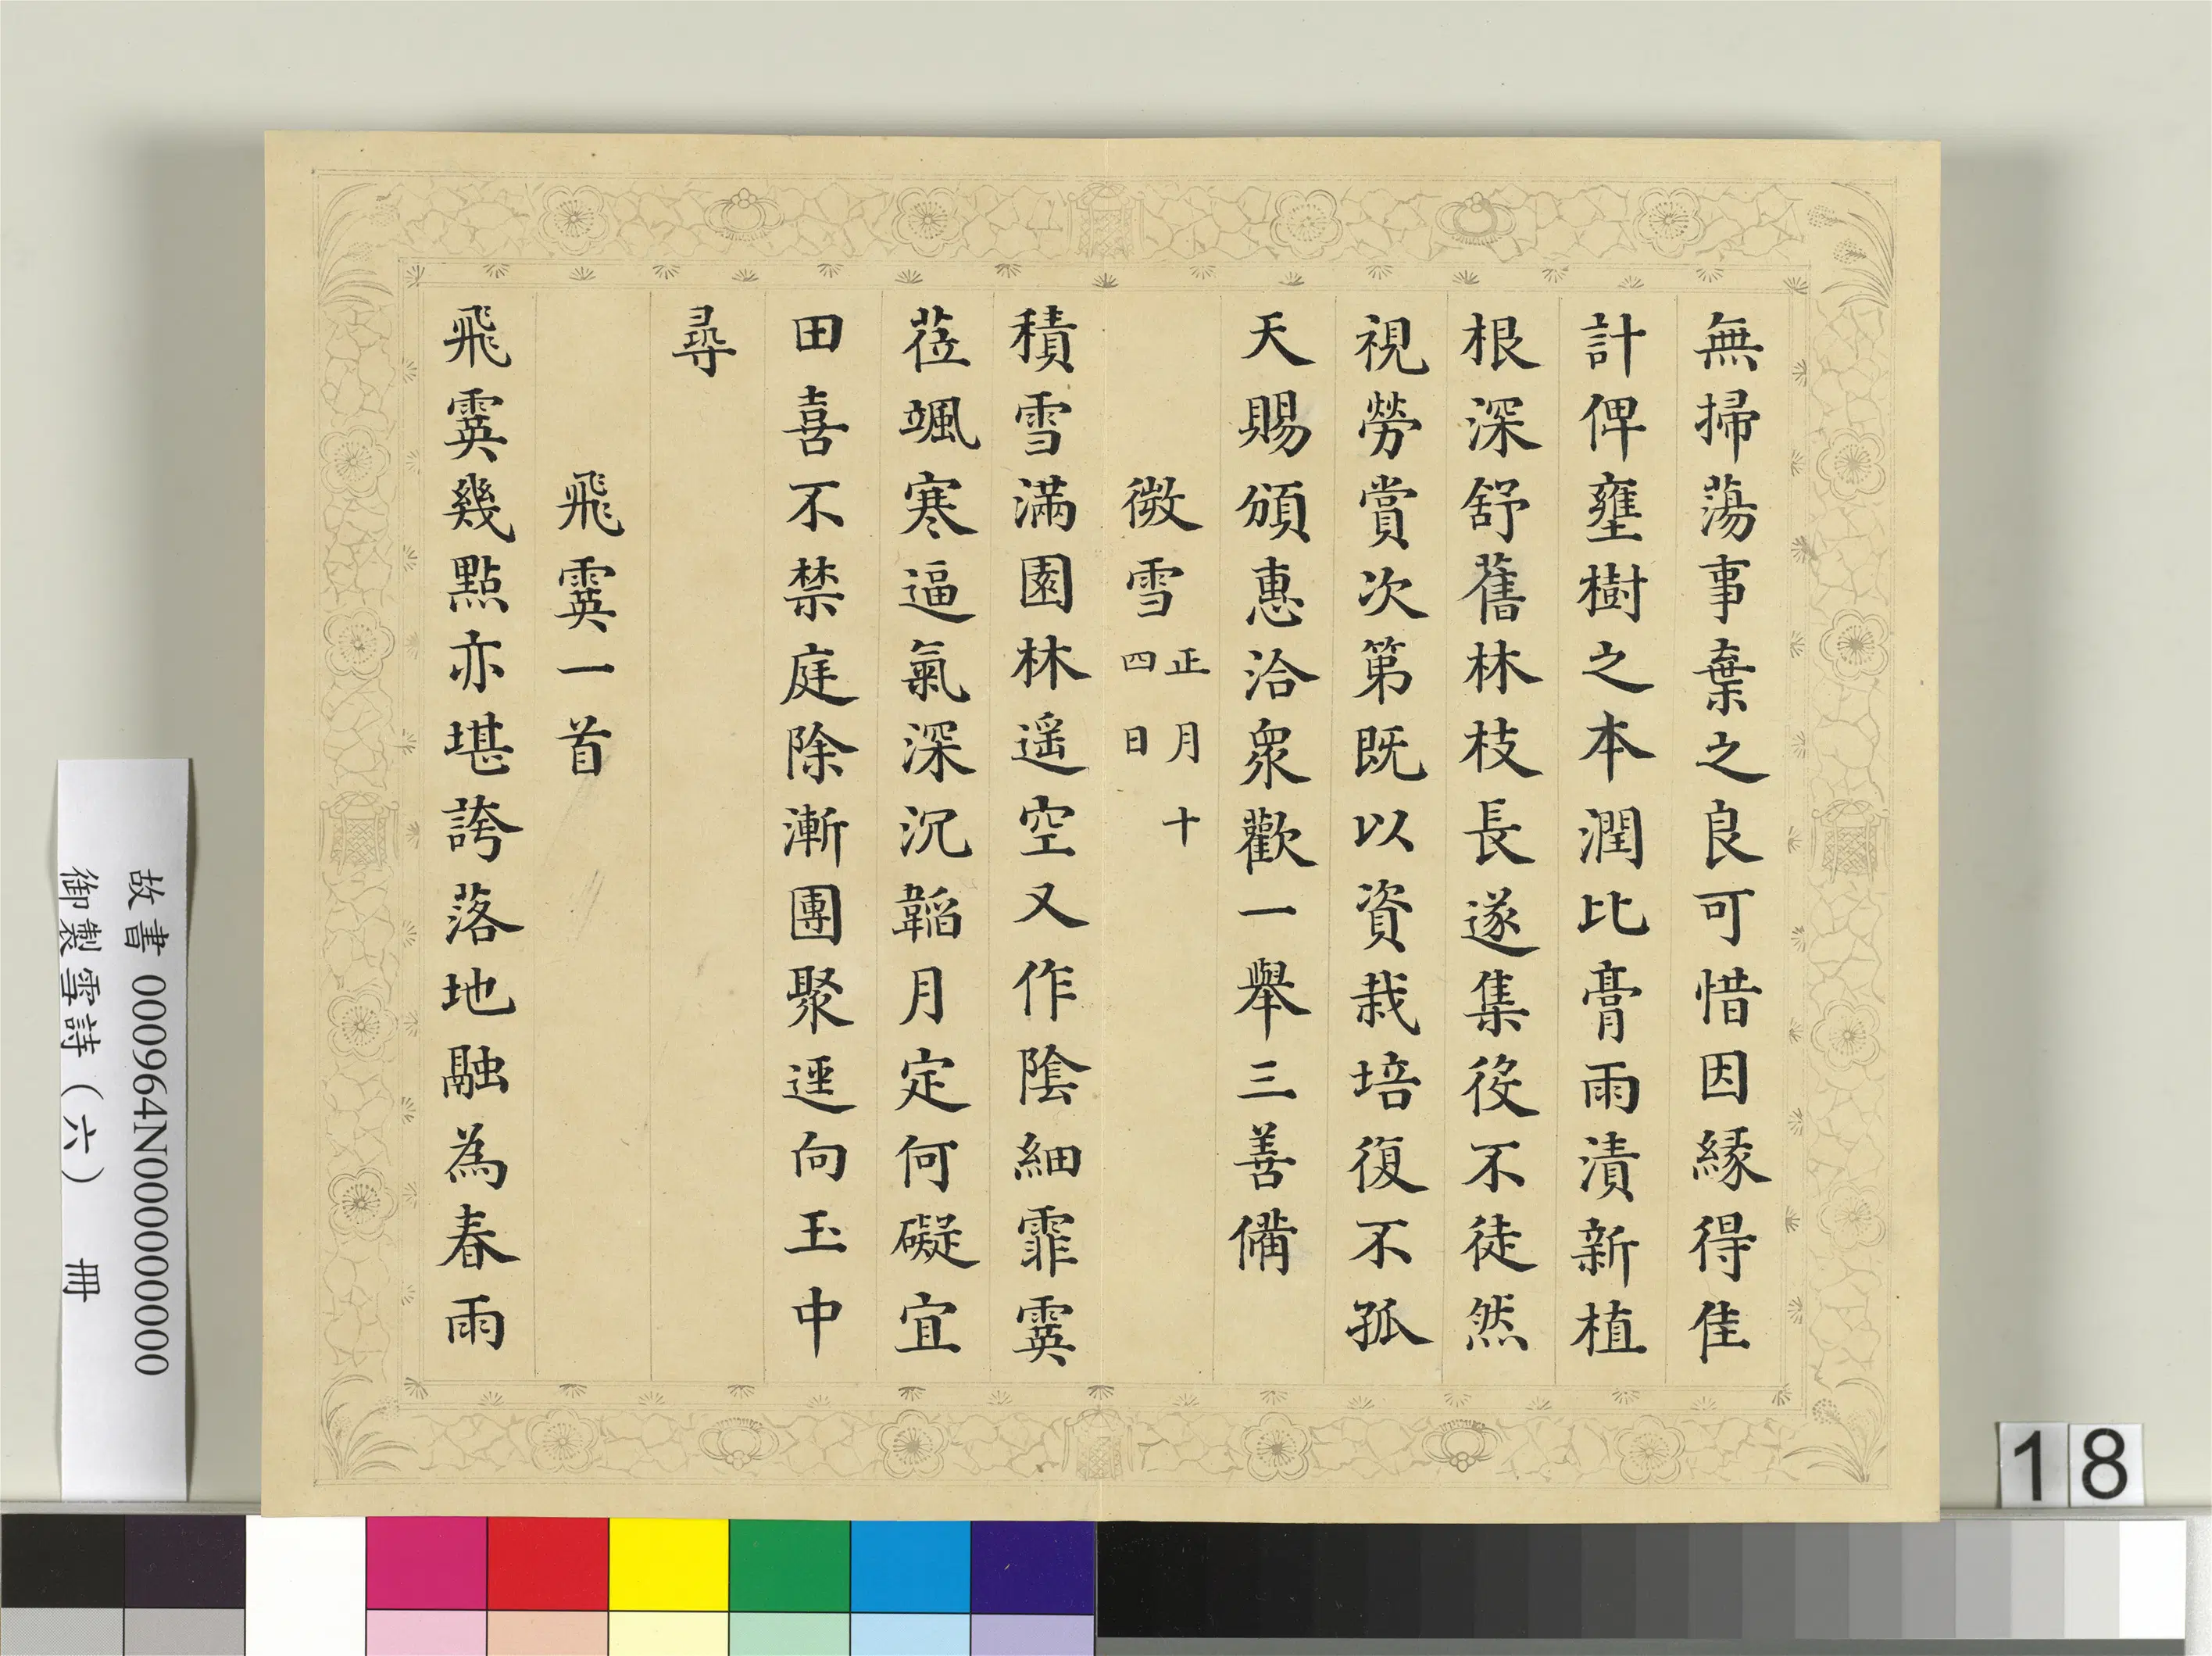 無掃蕩事棄之良可惜因緣得佳
計俾壅樹之本潤比膏雨漬新植
根深舒舊林枝長遂集役不徒然
視勞賞次第既以資栽培復不孤
天賜頒惠洽衆歡一舉三善備
微雪正月十四日
積雪滿園林遥空又作陰細霏霙
莅颯寒逼氣深沉韜月定何礙宜
田喜不禁庭除漸團聚逕向玉中
尋
飛霙一首
飛霙幾點亦堪誇落地融為春雨
故書 000964N000000000
御製雪詩（六） 冊
18